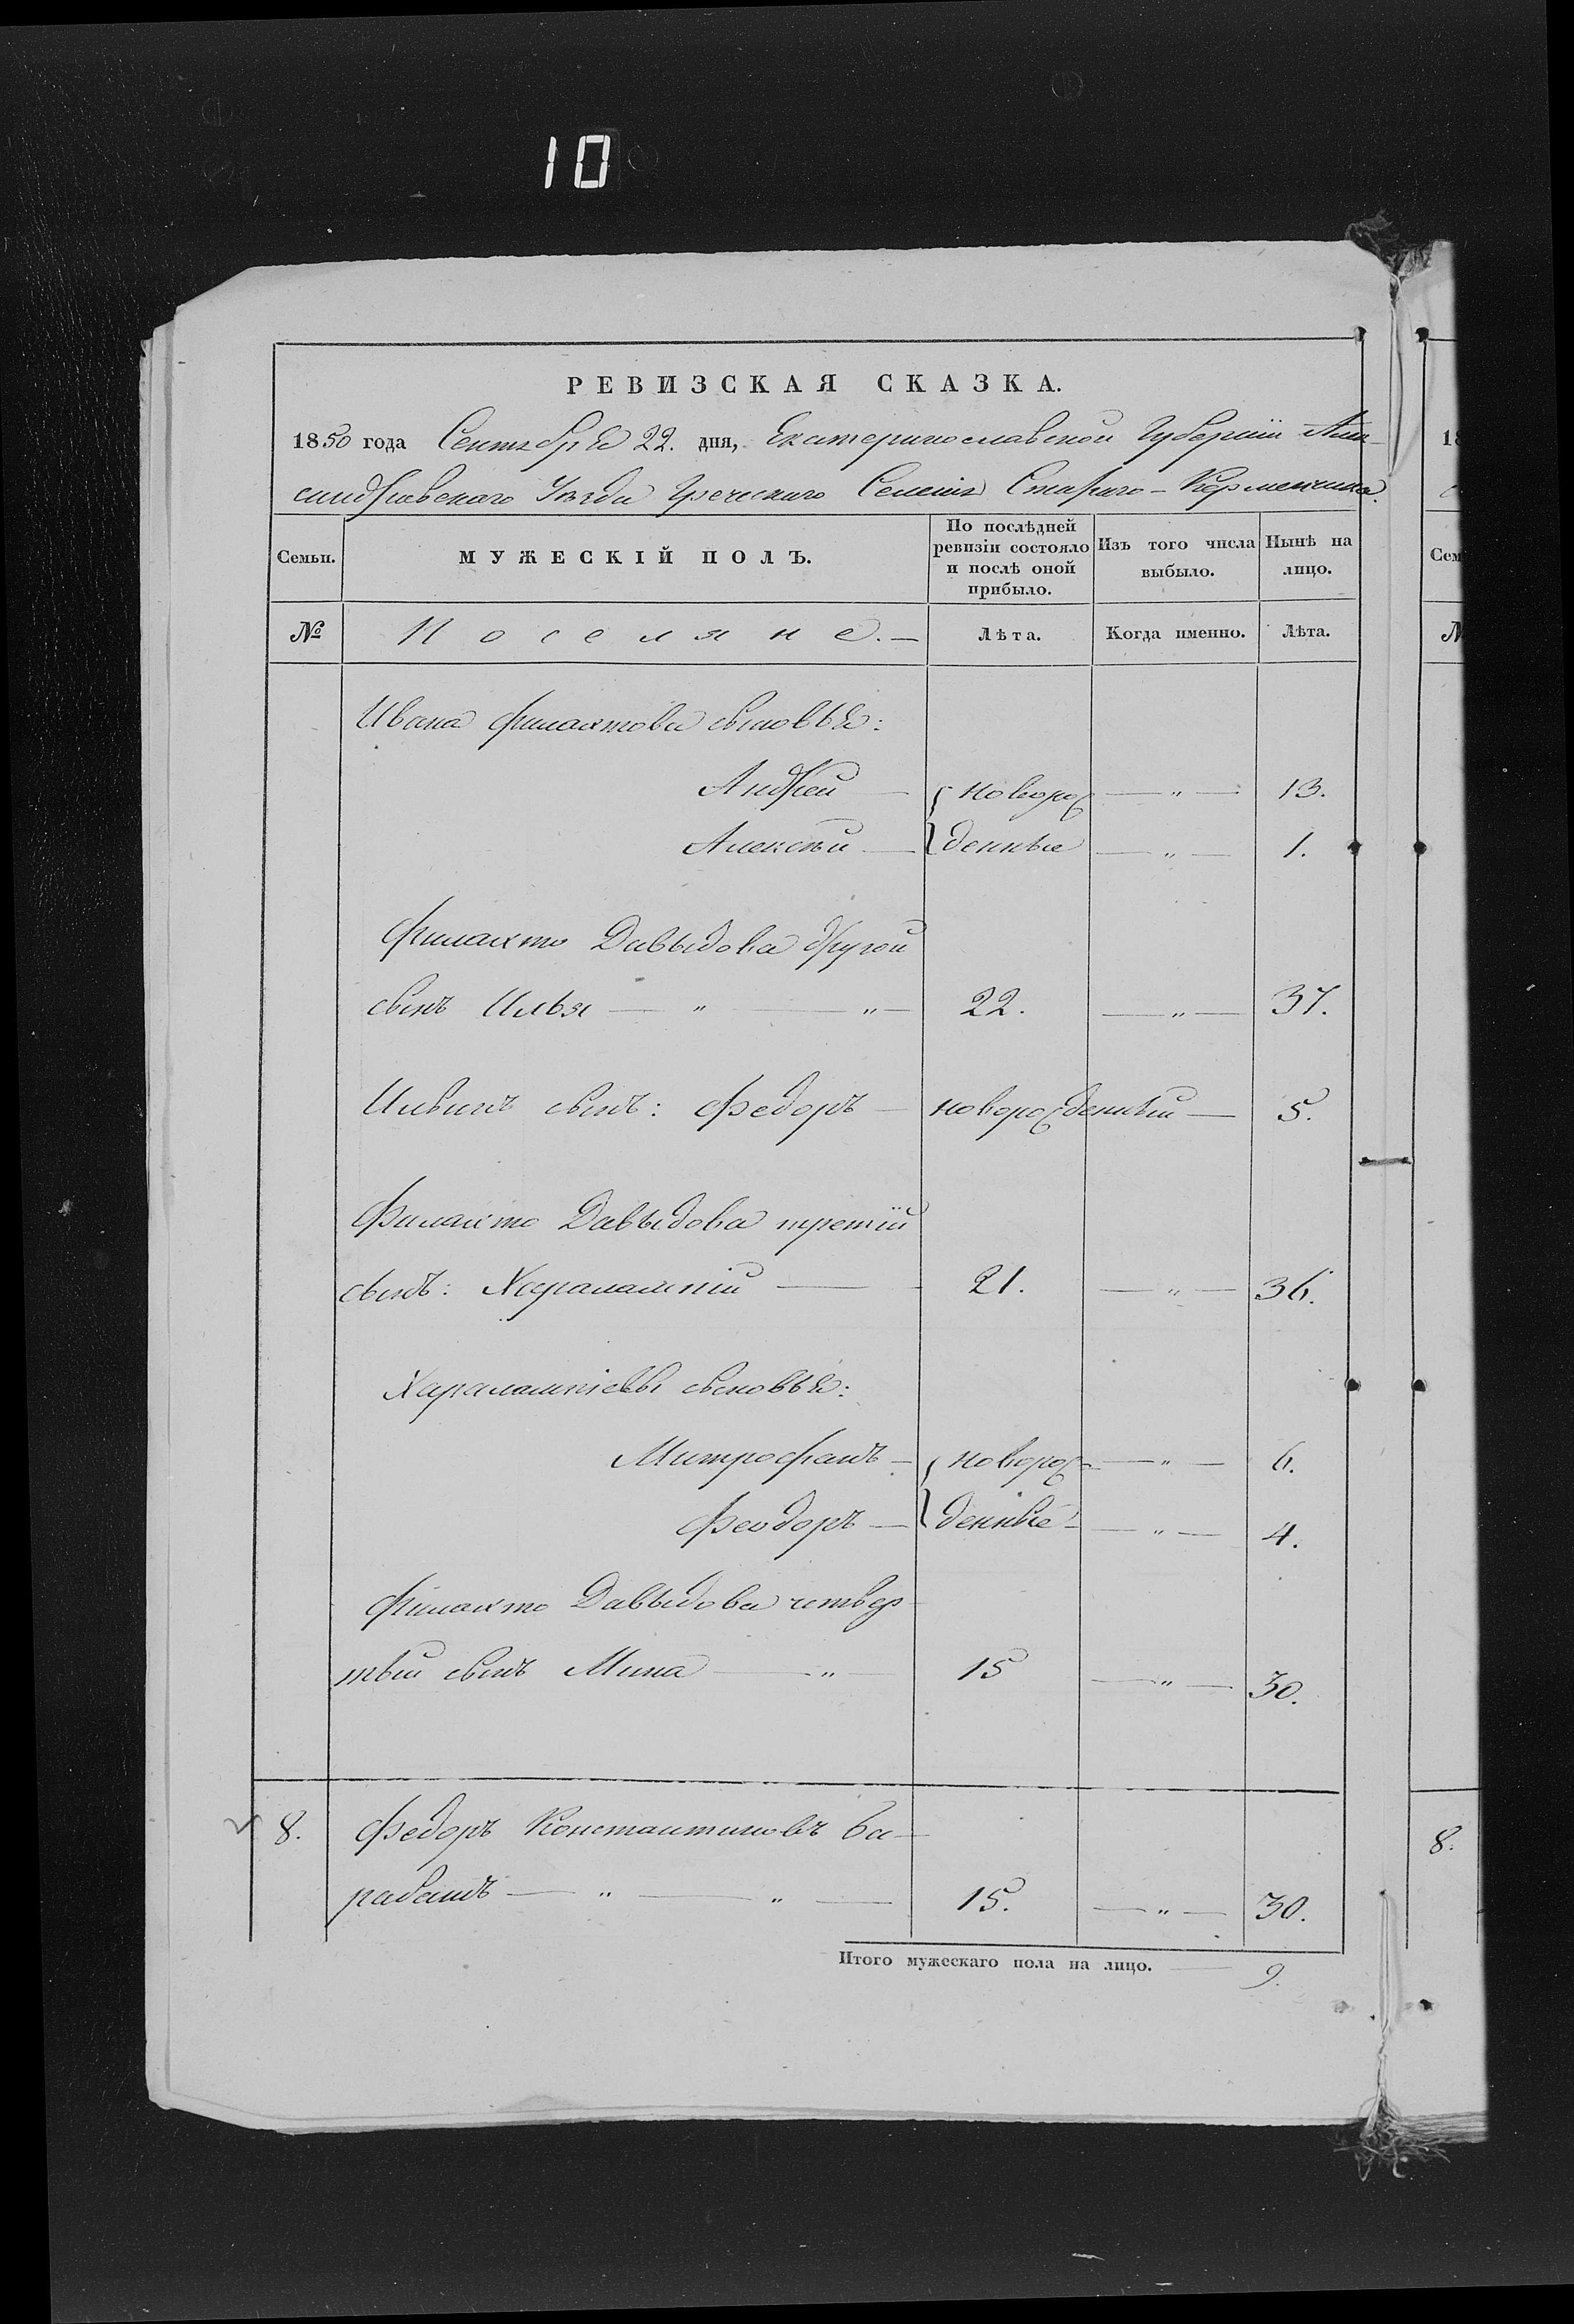 10
РЕВИЗСКАЯ СКАЗКА.
1850 года Сентября 22. дня, Екатеринославской Губерніи Алек-
сандровскаго Уѣзда Греческаго Селенія Стараго-Керменчика.
Семьи.
МУЖЕСКІЙ ПОЛЪ.
По послѣдней ревизіи состояло и послѣ оной прибыло.
Изъ того числа выбыло.
Нынѣ на лицо.
№ Поселяне. — Лѣта. Когда именно. Лѣта.
Ивана Филахтова сыновья:
Андрей — новорож — „ — 13.
Алексѣй — денные — „ — 1.
Филахто Давыдова другой
сынъ Илья — „ — „ — 22. — „ — 37.
Ильинъ сынъ: Федоръ — новорожденный — 5.
Филахто Давыдова третій
сынъ: Харалампій — 21. — „ — 36.
Харалампіевы сыновья:
Митрофанъ — новорож- — „ — 6.
Феодоръ — денные- — „ — 4.
Филахто Давыдова четвер-
тый сынъ Мина — „ — 15 — „ — 30.
8. Федоръ Константиновъ Ба-
рабашъ — „ — „ — 15. — „ — 30.
Итого мужескаго пола на лицо. — 9.
18
Сем
№
8.